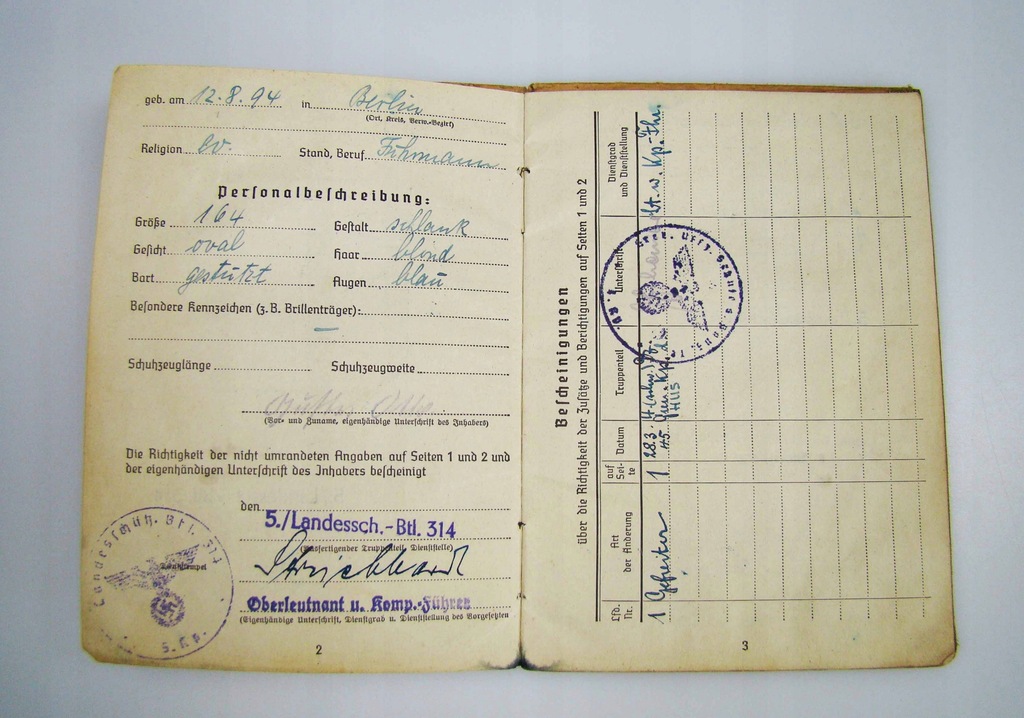 geb. am 12.8.94 in Berlin
(Ort, Kreis, Verw.-Bezirk)
Religion ev. Stand, Beruf
Personalbeschreibung:
Größe 164 Gestalt schlank
Gesicht oval Haar blond
Bart gestutzt Augen blau
Besondere Kennzeichen (z.B. Brillenträger): —
Schuhzeuglänge Schuhzeugweite
(Vor- und Zuname, eigenhändige Unterschrift des Inhabers)
Die Richtigkeit der nicht umrandeten Angaben auf Seiten 1 und 2 und
der eigenhändigen Unterschrift des Inhabers bescheinigt
den
5./Landessch.-Btl. 314
(Ausfertigender Truppenteil, Dienststelle)
Oberleutnant u. Komp.-Führer
(Eigenhändige Unterschrift, Dienstgrad u. Dienststellung des Vorgesetzten)
Landesschütz. Btl. 314
Dienststempel
2
Bescheinigungen
über die Richtigkeit der Zusätze und Berichtigungen auf Seiten 1 und 2
Lfd. Nr.
Art der Änderung
auf Seite
Datum
Truppenteil
Unterschrift
Dienstgrad und Dienststellung
1 Gefreiter 1 28.3.
45
3